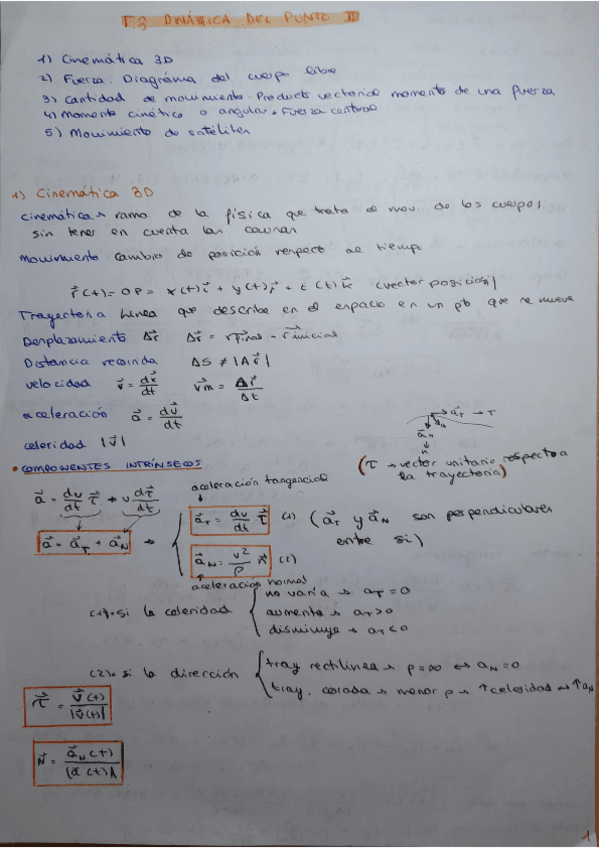 T.3 DINÁMICA DEL PUNTO II
1) Cinemática 3D
2) Fuerza. Diagrama del cuerpo libre
3) Cantidad de movimiento. Producto vectorial momento de una fuerza
4) Momento cinético o angular. Fuerza central
5) Movimiento de satélites
1) Cinemática 3D
Cinemática → rama de la física que trata el mov. de los cuerpos,
sin tener en cuenta las causas
Movimiento cambio de posición respect al tiempo
r⃗(t) = OP = x(t)i⃗ + y(t)j⃗ + z(t)k⃗ (vector posición)
Trayectoria Línea que describe en el espacio en un pto que se mueve
Desplazamiento Δr⃗ Δr⃗ = r⃗final - r⃗inicial
Distancia recorrida ΔS ≠ |Δr⃗|
velocidad v⃗ = dx⃗/dt v⃗m = Δr⃗/Δt
aceleración a⃗ = dv⃗/dt
celeridad |v⃗|
a⃗T → T
a⃗n
n
• COMPONENTES INTRÍNSECOS
(τ → vector unitario respecto a
la trayectoria)
a⃗ = dv/dt τ⃗ + v dτ⃗/dt
aceleración tangencial
a⃗T = dv/dt τ⃗ (1) (a⃗T y a⃗N son perpendiculares
entre sí)
a⃗ = a⃗T + a⃗N →
a⃗N = v²/ρ N⃗ (2)
aceleración normal
(1) • si la celeridad
no varía → aT = 0
aumenta → aT > 0
disminuye → aT < 0
(2) • si la dirección
tray rectilínea → ρ = ∞ ↔ aN = 0
tray. cerrada → menor ρ → ↑ celeridad → ↑ aN
τ⃗ = v⃗(t)/|v⃗(t)|
N⃗ = a⃗N(t)/|a⃗(t)|
1